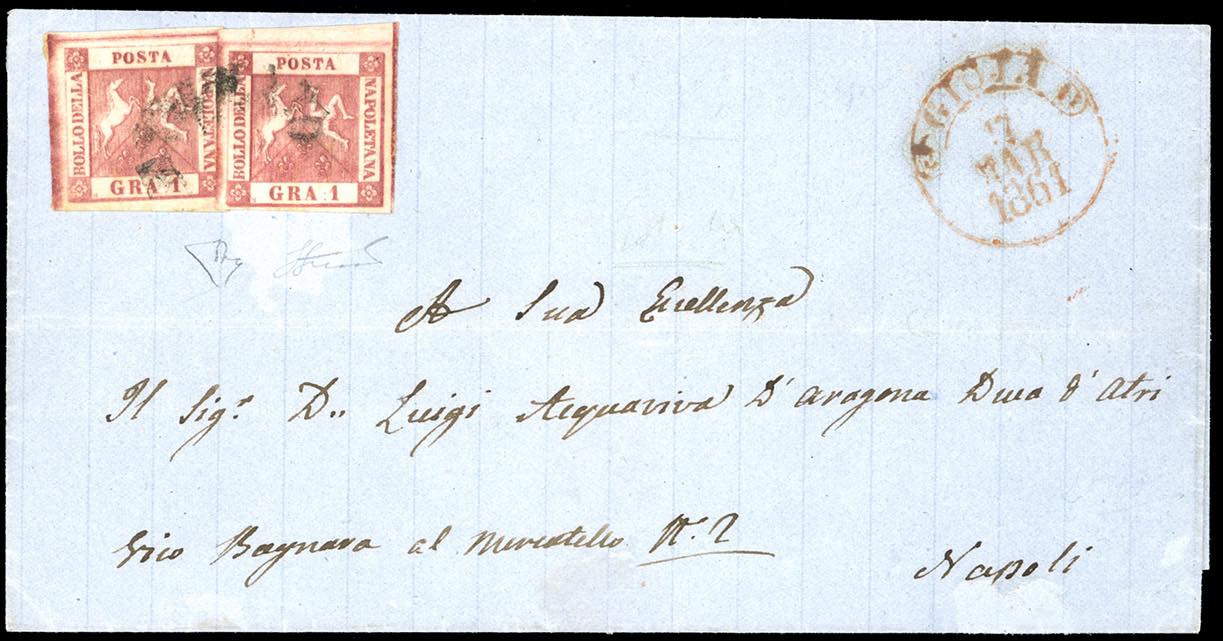 POSTA
BOLLO DELLA
NAPOLETANA
GRA 1
POSTA
BOLLO DELLA
NAPOLETANA
GRA 1
MAR
1861
A Sua Eccellenza
Il Sigr. D.. Luigi Acquaviva D'aragona Duca d'Atri
Vico Bagnara al Mercatello N.o 2
Napoli